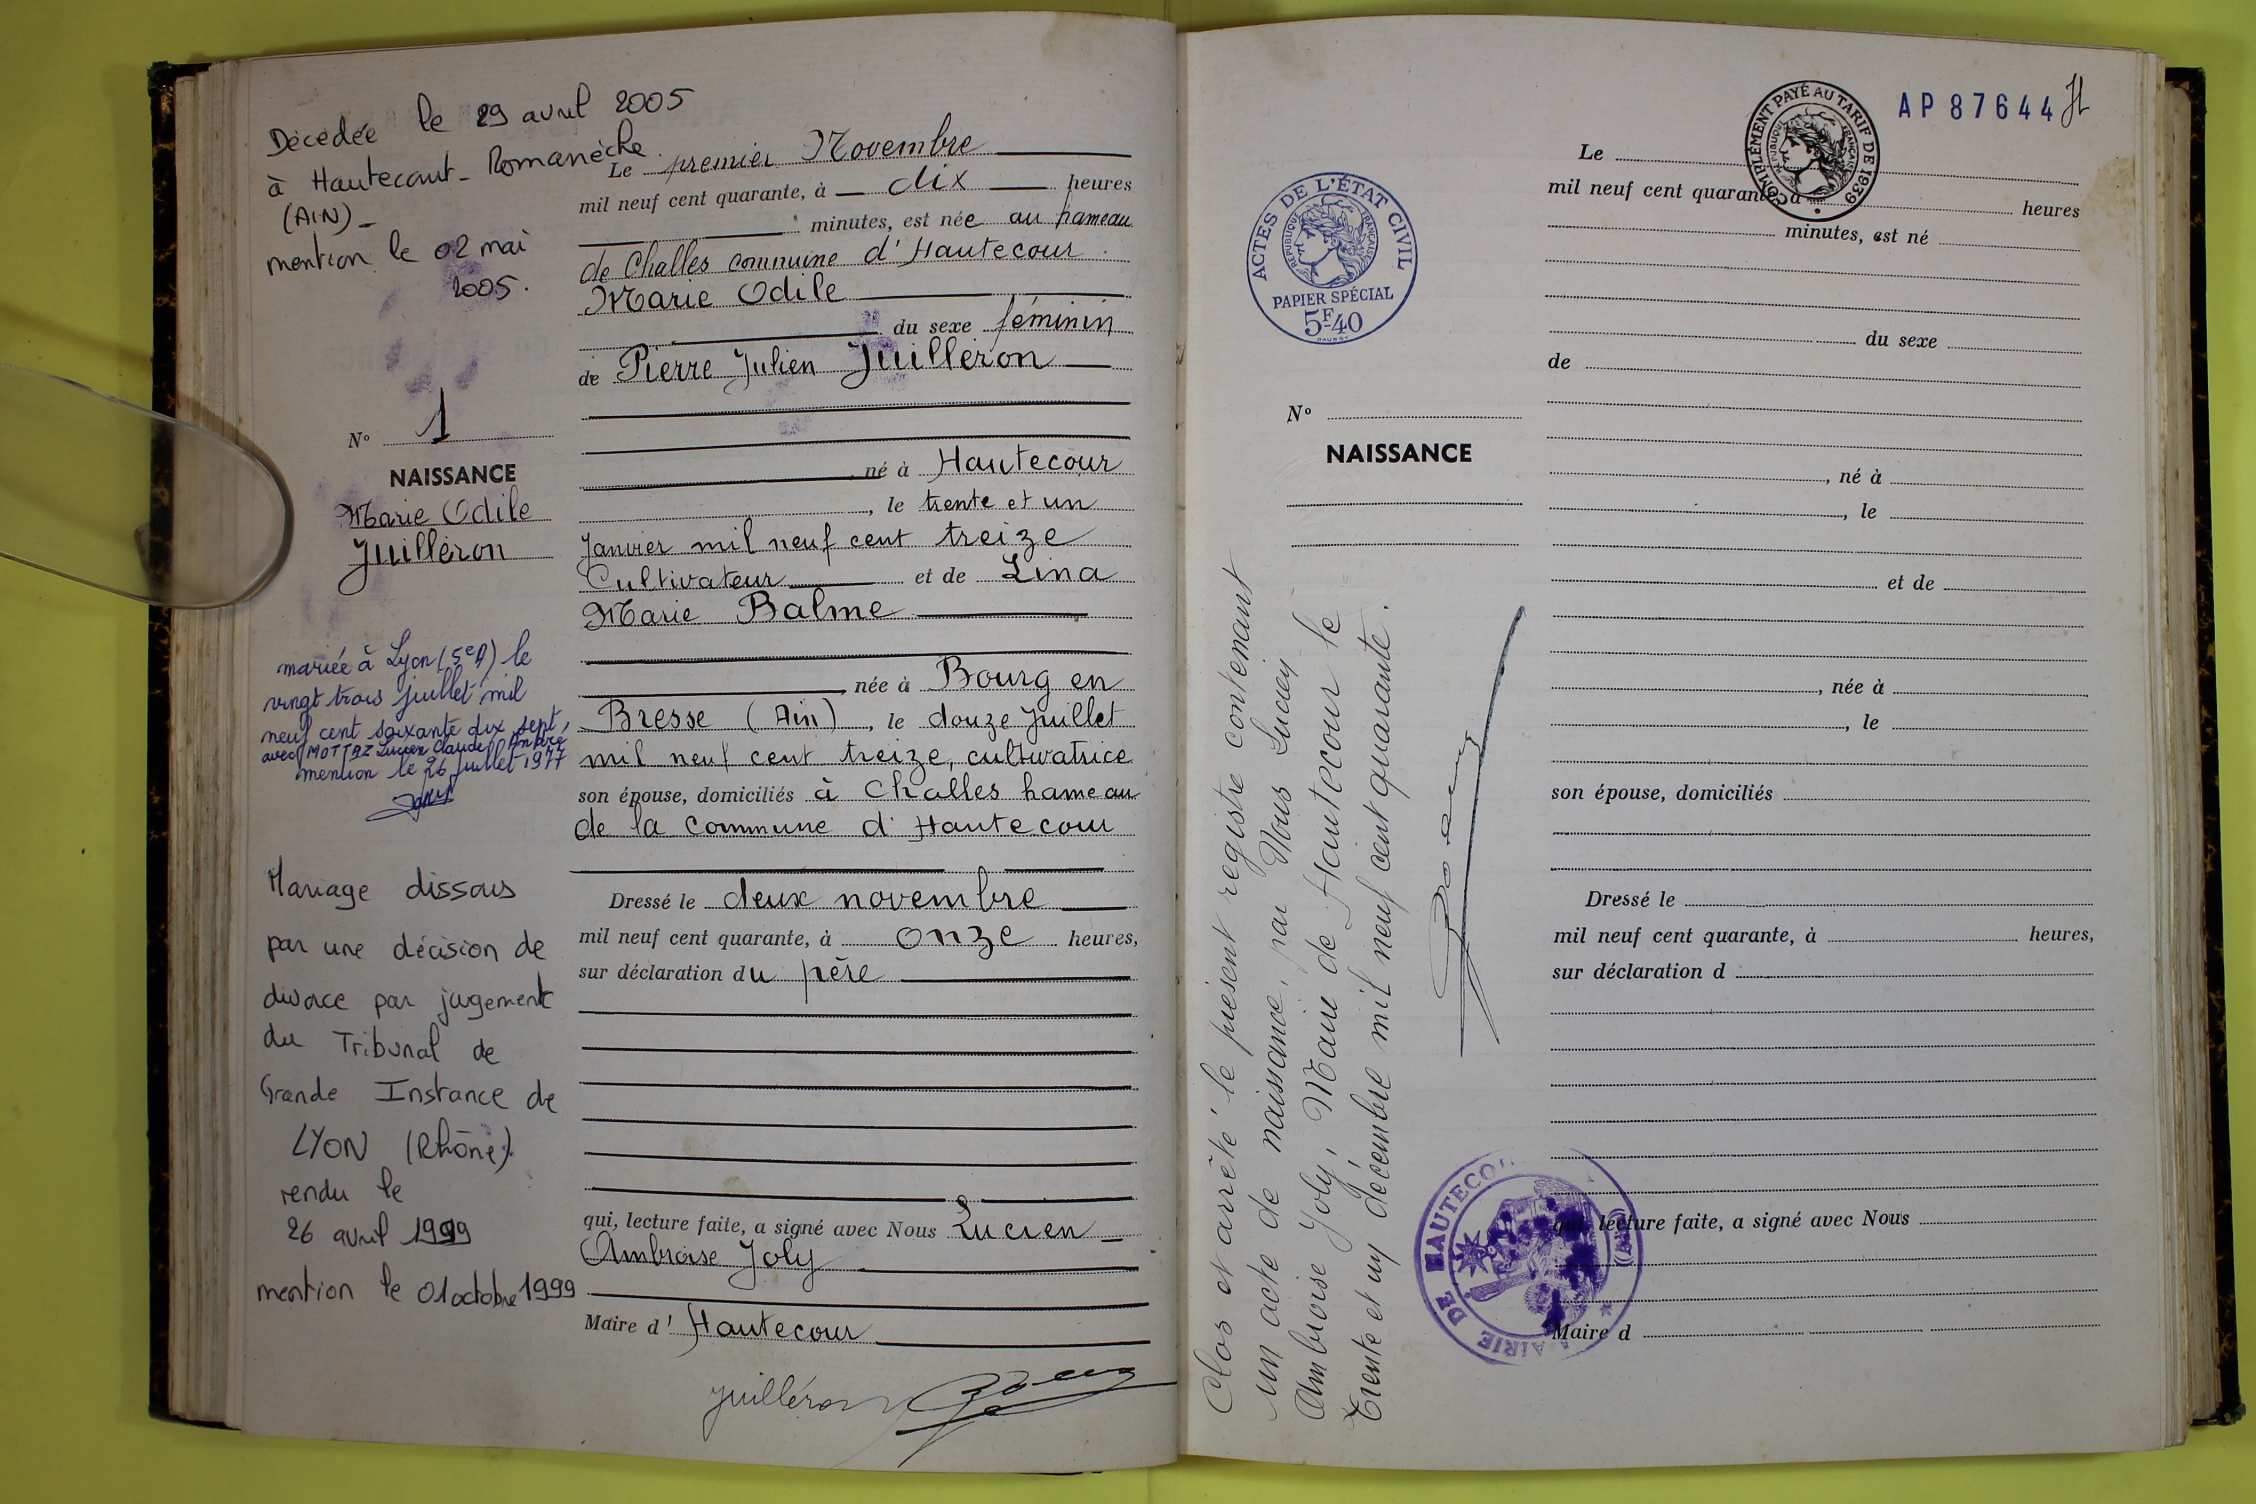 Décédée le 29 avril 2005
à Hautecourt-Romanèche
(AIN)-
mention le 02 mai
2005.
N° 1
NAISSANCE
Marie Odile
Juilléron
mariée à Lyon (5e A) le
vingt trois juillet mil
neuf cent soixante dix sept,
avec MOTTAZ Lucien Claude André
mention le 26 juillet 1977
Mariage dissous
par une décision de
divorce par jugement
du Tribunal de
Grande Instance de
LYON (Rhône)
rendu le
26 avril 1999
mention le 01 octobre 1999
Le premier Novembre
mil neuf cent quarante, à dix heures
minutes, est née au hameau
de Challes commune d'Hautecour
Marie Odile
du sexe féminin
de Pierre Julien Juilléron
né à Hautecour
, le trente et un
Janvier mil neuf cent treize
Cultivateur et de Lina
Marie Balme
, née à Bourg en
Bresse (Ain), le douze Juillet
mil neuf cent treize, cultivatrice
son épouse, domiciliés à Challes hameau
de la commune d'Hautecour
Dressé le deux novembre
mil neuf cent quarante, à onze heures,
sur déclaration du père
qui, lecture faite, a signé avec Nous Lucien
Ambroise Joly
Maire d'Hautecour
Juilléron
ACTES DE L'ÉTAT CIVIL
RÉPUBLIQUE FRANÇAISE
PAPIER SPÉCIAL
5F40
N°
NAISSANCE
Clos et arrêté le présent registre contenant
un acte de naissance, par Nous Lucien
Ambroise Joly, Maire de Hautecour le
trente et un décembre mil neuf cent quarante.
MAIRIE DE HAUTECOUR (AIN)
COMPLÉMENT PAYÉ AU TARIF DE 1939
RÉPUBLIQUE FRANÇAISE
AP 87644
Le
mil neuf cent quarante, à heures
minutes, est né
du sexe
de
, né à
, le
et de
, née à
, le
son épouse, domiciliés
Dressé le
mil neuf cent quarante, à heures,
sur déclaration d
qui, lecture faite, a signé avec Nous
Maire d